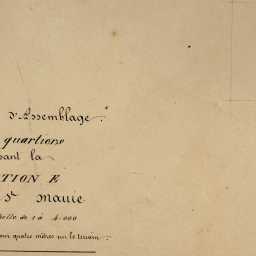 d'Assemblage.
quartiers
sant la
TION E
St Mauie
helle de 1 à 4.000
our quatre mètres sur le terrain.